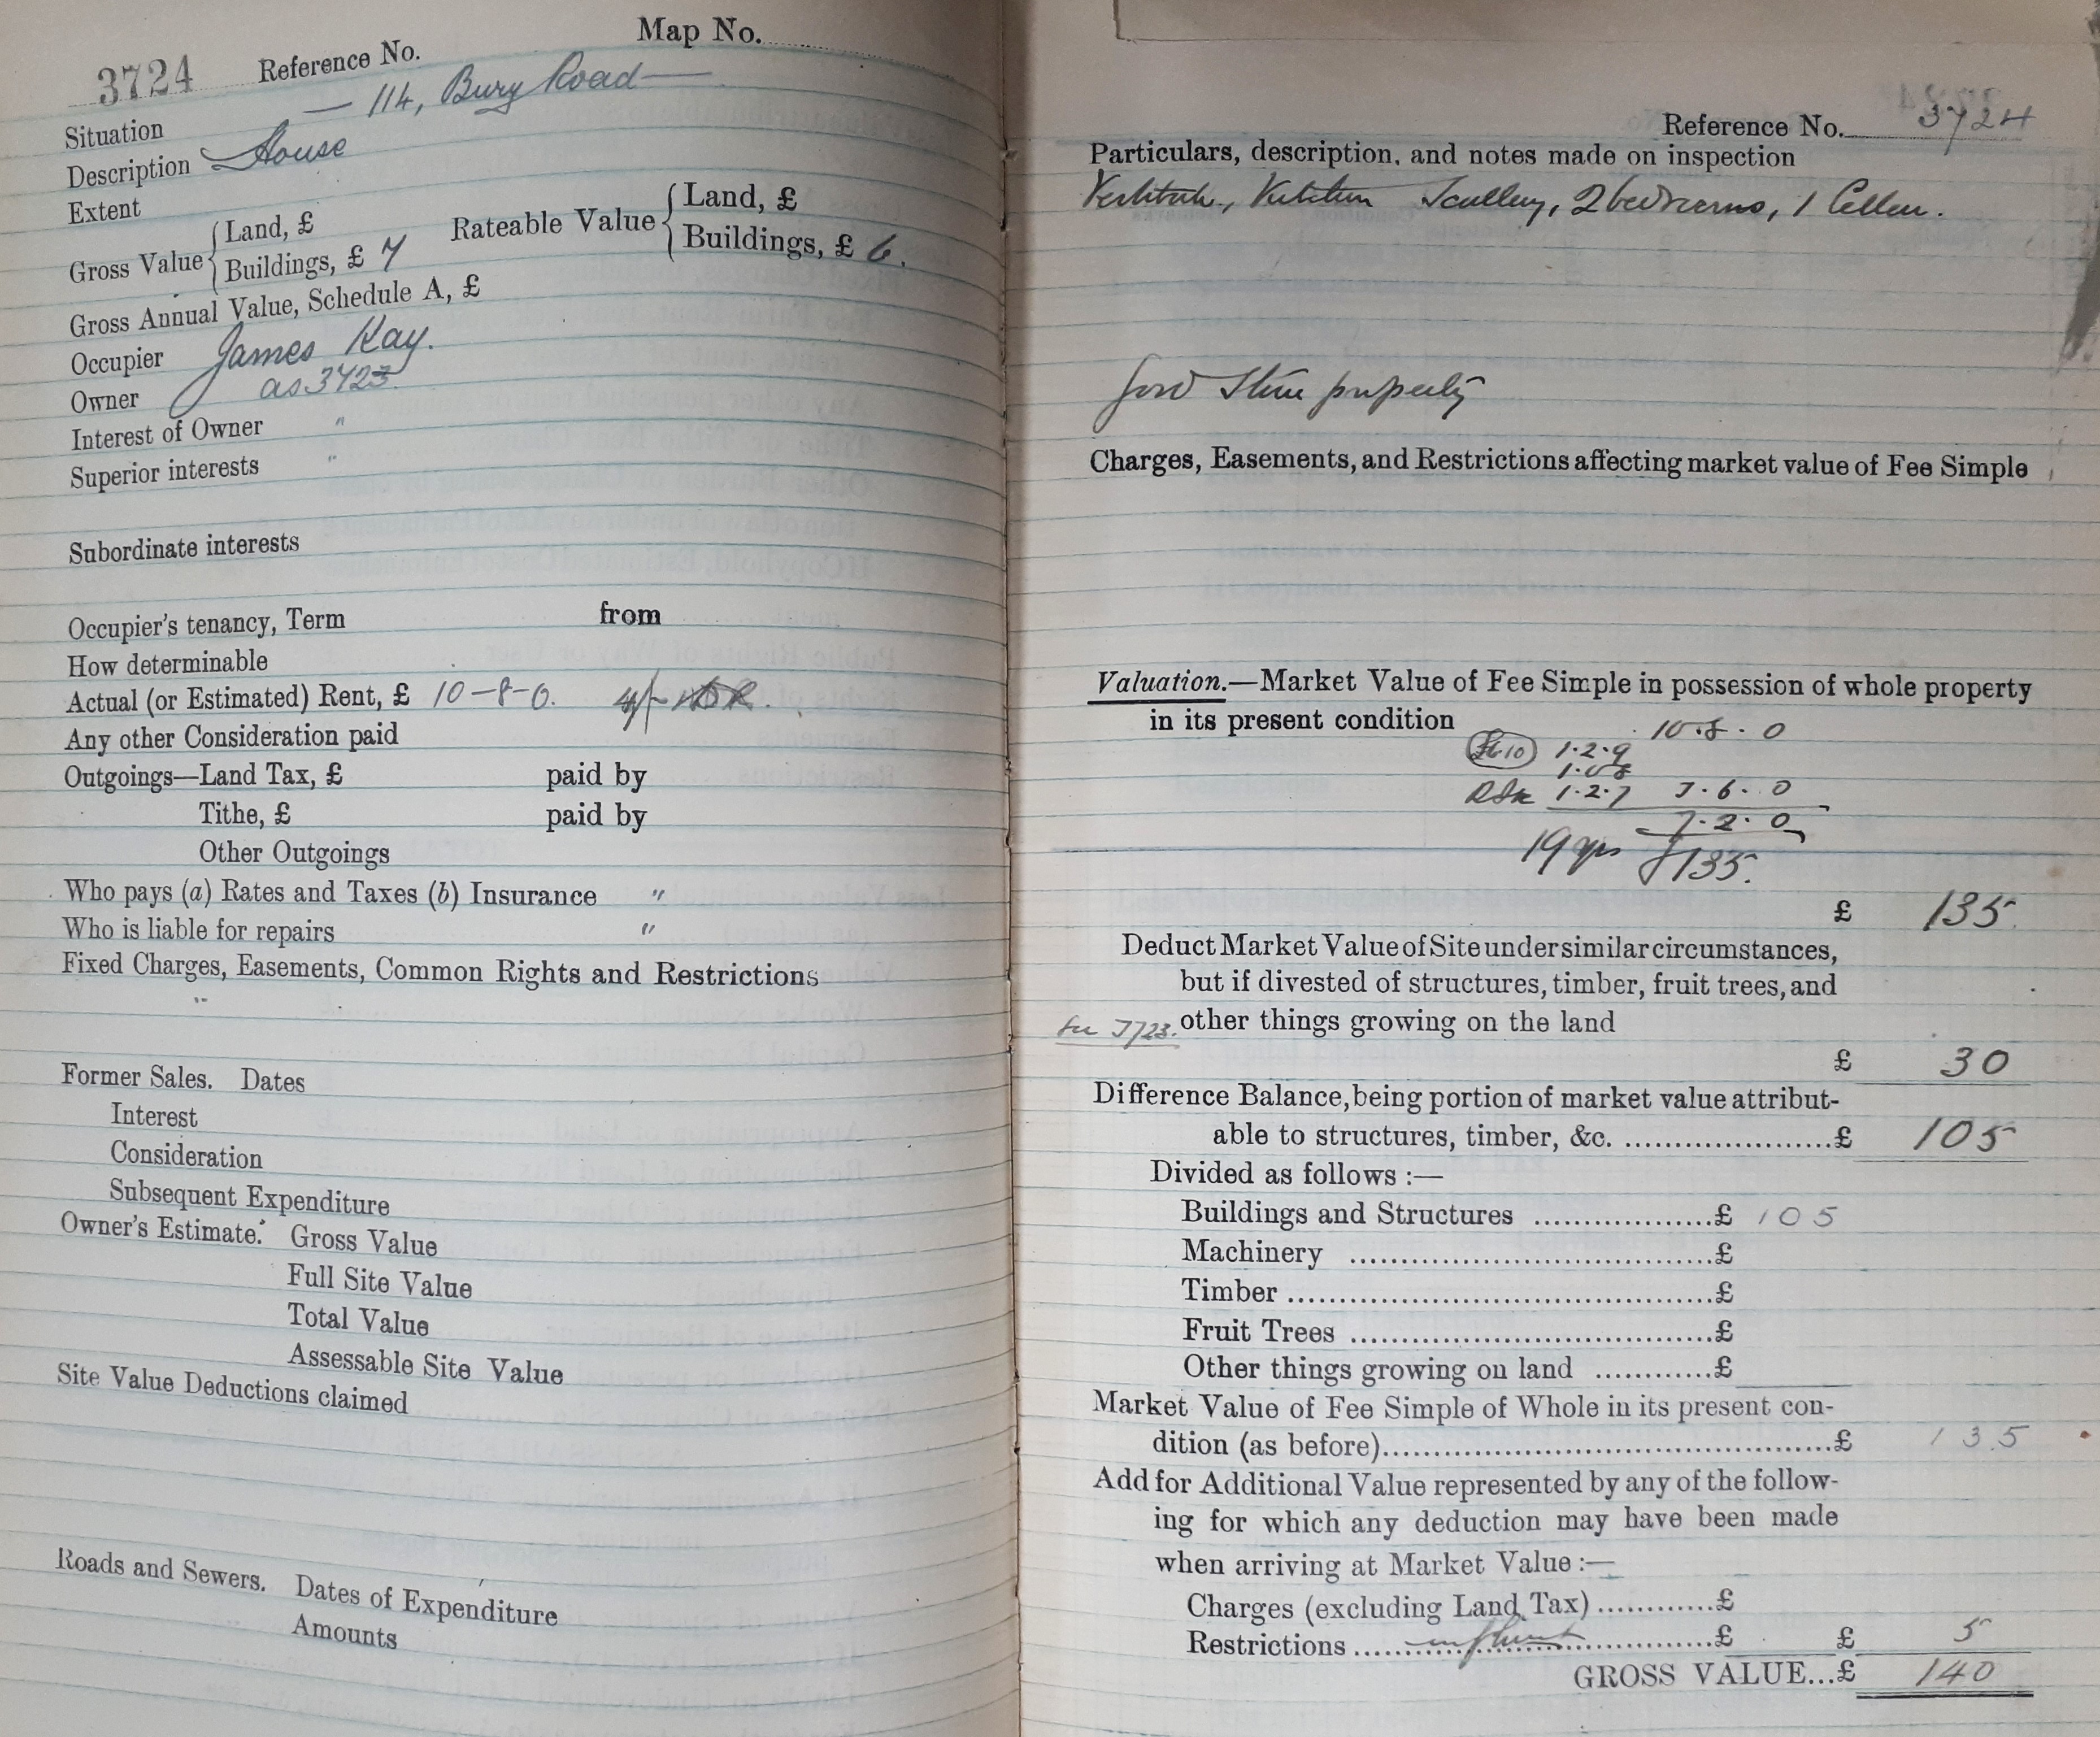 Map No.
3724 Reference No.
— 114, Bury Road —
Situation
Description House
Extent
Gross Value { Land, £
Buildings, £ 7
Rateable Value { Land, £
Buildings, £ 6.
Gross Annual Value, Schedule A, £
Occupier James Kay.
Owner as 3723.
Interest of Owner "
Superior interests "
Subordinate interests
Occupier's tenancy, Term from
How determinable
Actual (or Estimated) Rent, £ 10-8-0. 4/-
Any other Consideration paid
Outgoings—Land Tax, £ paid by
Tithe, £ paid by
Other Outgoings
Who pays (a) Rates and Taxes (b) Insurance "
Who is liable for repairs "
Fixed Charges, Easements, Common Rights and Restrictions
"
Former Sales. Dates
Interest
Consideration
Subsequent Expenditure
Owner's Estimate. Gross Value
Full Site Value
Total Value
Assessable Site Value
Site Value Deductions claimed
Roads and Sewers. Dates of Expenditure
Amounts
Reference No. 3724
Particulars, description, and notes made on inspection
Vestibule, Kitchen Scullery, 2 bedrooms, 1 Cellar.
Good Stone property
Charges, Easements, and Restrictions affecting market value of Fee Simple
Valuation.—Market Value of Fee Simple in possession of whole property
in its present condition
10.8.0
£6.10 1.2.9
1.0.8
1.2.7 3.6.0
7.2.0
19 yrs £135.
£ 135.
Deduct Market Value of Site under similar circumstances,
but if divested of structures, timber, fruit trees, and
See 3723. other things growing on the land
£ 30
Difference Balance, being portion of market value attribut-
able to structures, timber, &c. ......................£ 105
Divided as follows :—
Buildings and Structures ..................£ 105
Machinery .....................................£
Timber ...........................................£
Fruit Trees .....................................£
Other things growing on land ............£
Market Value of Fee Simple of Whole in its present con-
dition (as before)..............................................£ 135
Add for Additional Value represented by any of the follow-
ing for which any deduction may have been made
when arriving at Market Value :—
Charges (excluding Land Tax) ............£
Restrictions ..............................£ £ 5
GROSS VALUE...£ 140